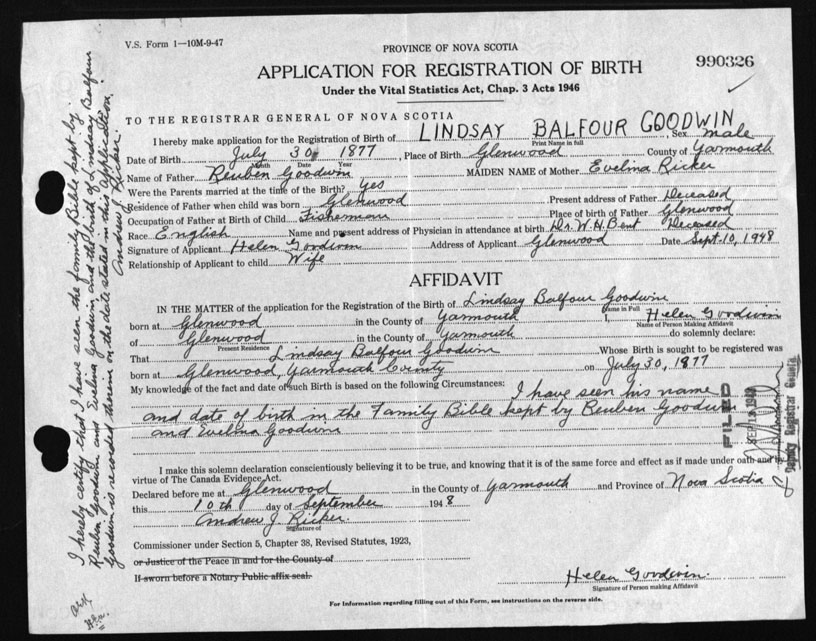 V.S. Form 1—10M-9-47
PROVINCE OF NOVA SCOTIA
990326
APPLICATION FOR REGISTRATION OF BIRTH
Under the Vital Statistics Act, Chap. 3 Acts 1946
TO THE REGISTRAR GENERAL OF NOVA SCOTIA
I hereby make application for the Registration of Birth of LINDSAY BALFOUR GOODWIN, Sex male
Print Name in full
Date of Birth July 30, 1877, Place of Birth Glenwood County of Yarmouth
Month Date Year
Name of Father Reuben Goodwin MAIDEN NAME of Mother Evelina Ricker
Were the Parents married at the time of the Birth? Yes
Residence of Father when child was born Glenwood Present address of Father Deceased
Occupation of Father at Birth of Child Fisherman Place of birth of Father Glenwood
Race English Name and present address of Physician in attendance at birth Dr. W.H. Bent Deceased
Signature of Applicant Helen Goodwin Address of Applicant Glenwood Date Sept. 10, 1948
Relationship of Applicant to child Wife
AFFIDAVIT
IN THE MATTER of the application for the Registration of the Birth of Lindsay Balfour Goodwin
Name in Full
born at Glenwood in the County of Yarmouth I, Helen Goodwin
Name of Person Making Affidavit
of Glenwood in the County of Yarmouth do solemnly declare:
Present Residence
That Lindsay Balfour Goodwin Whose Birth is sought to be registered was
born at Glenwood, Yarmouth County on July 30, 1877
My knowledge of the fact and date of such Birth is based on the following Circumstances: I have seen his name
and date of birth in the Family Bible kept by Reuben Goodwin
and Evelina Goodwin
I make this solemn declaration conscientiously believing it to be true, and knowing that it is of the same force and effect as if made under oath and by
virtue of The Canada Evidence Act.
Declared before me at Glenwood in the County of Yarmouth and Province of Nova Scotia
this 10th day of September 1948
Andrew J. Ricker.
Signature of
Commissioner under Section 5, Chapter 38, Revised Statutes, 1923,
or Justice of the Peace in and for the County of
If sworn before a Notary Public affix seal.
Helen Goodwin.
Signature of Person making Affidavit
For Information regarding filling out of this Form, see instructions on the reverse side.
I hereby certify that I have seen the family Bible kept by
Reuben Goodwin and Evelina Goodwin and the birth of Lindsay Balfour
Goodwin is recorded therein on the date stated in this application.
Andrew J. Ricker.
FILED
SEP 13 1948
Deputy Registrar General